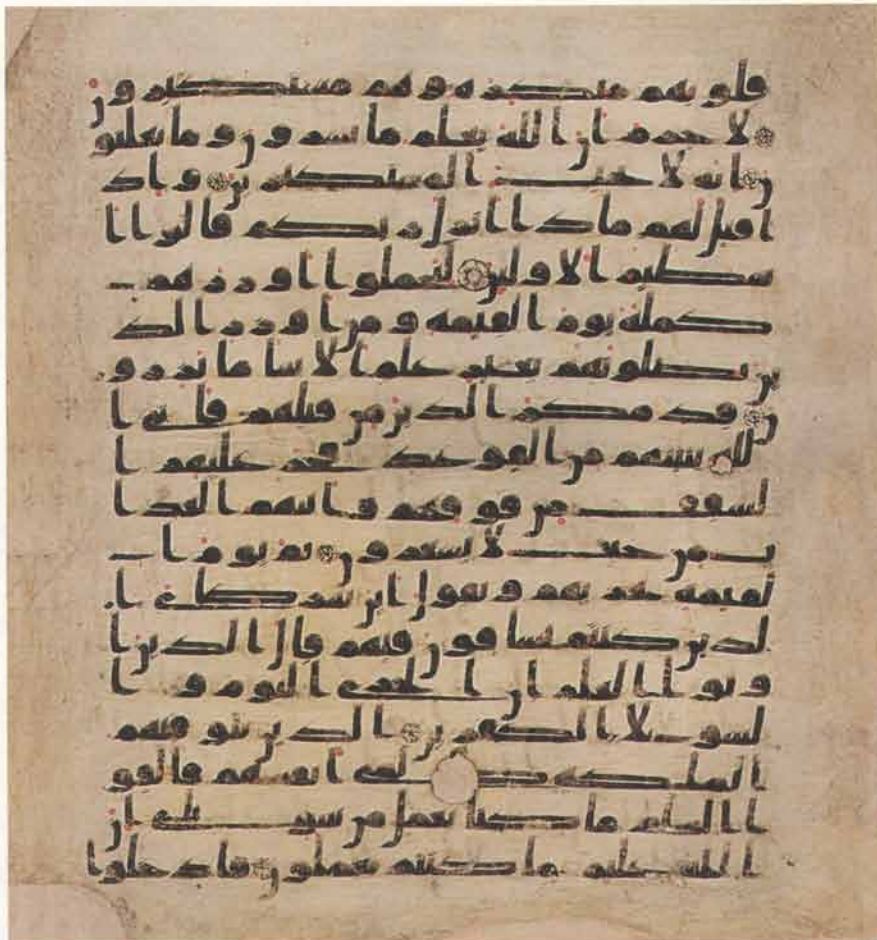 قلوبهم منكره وهم مستكبرون
لا جرم ان الله يعلم ما يسرون وما يعلنو
ن انه لا يحب المستكبرين واذ
ا قيل لهم ماذا انزل ربكم قالوا ا
سطير الاولين ليحملوا اوزرهم
كمله يوم القيمه ومن اوزر الذ
ين يضلونهم بغير علم الا سا ما يزرو
ن قد مكر الذين من قبلهم فاتى ا
لله بنينهم من القوعد فخر عليهم ا
لسقف من فوقهم واتيهم العذا
ب من حيث لا يشعرون ثم يوم ا
لقيمه يخزيهم ويقول اين شركاى ا
لذين كنتم تشاقون فيهم قال الذين ا
وتوا العلم ان الخزى اليوم وا
لسو علا الكفرين الذين تتوفيهم
الملئكه ظلمى انفسهم فالقو
ا السلم ما كنا نعمل من سو بلى ان
الله عليم بما كنتم تعملون فادخلوا